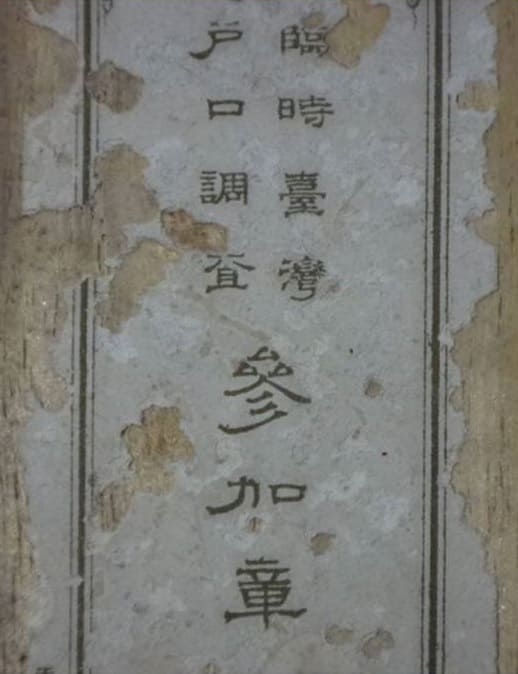 臨時臺灣
戶口調查
參加章